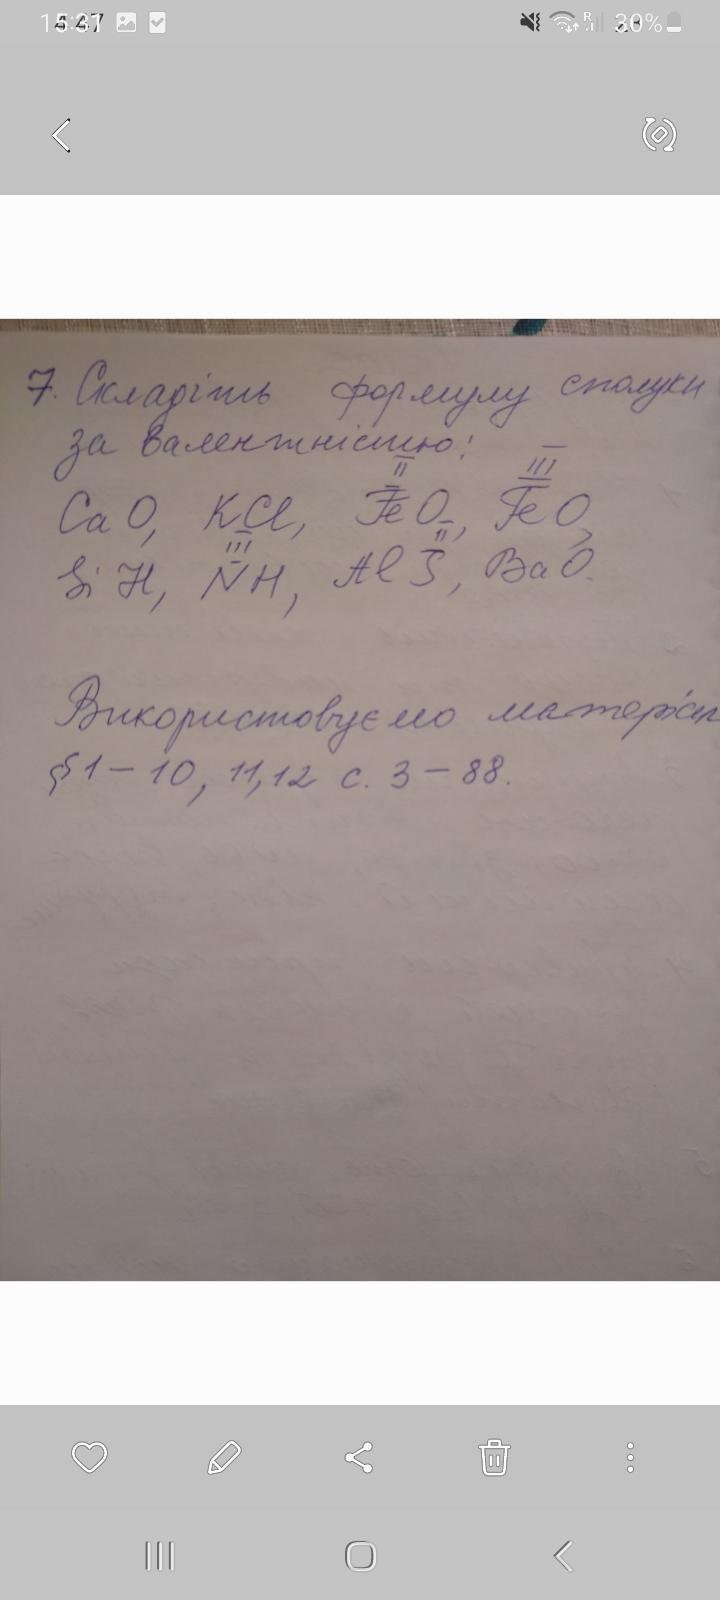 30%
7. Складіть формулу сполуки
за валентністю:
II III
CaO, KCl, FeO, FeO,
III II
SiH, NH, AlS, BaO.
Використовуємо матеріал
§1-10, 11,12 с. 3-88.